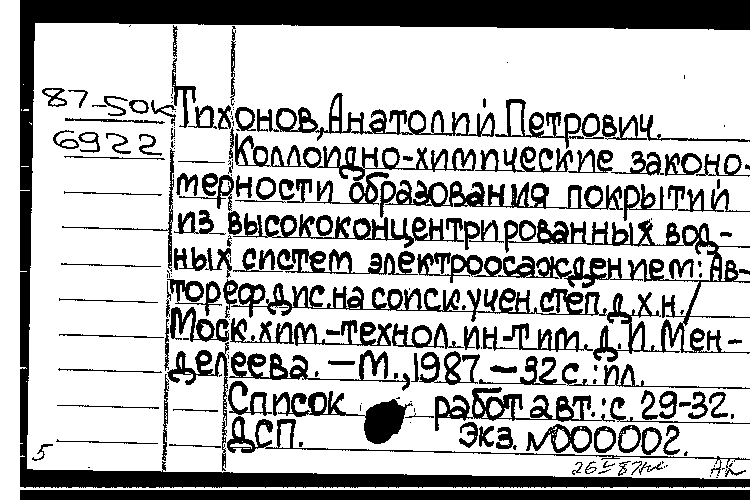 87-50к Тихонов, Анатолий Петрович.
6922 Коллоидно-химические законо-
мерности образования покрытий
из высококонцентрированных вод-
ных систем электроосаждением: Ав-
тореф. дис. на соиск. учен. степ. д.х.н. /
Моск. хим.-технол. ин-т им. Д.И. Мен-
делеева. — М., 1987. — 32 с.: ил.
Список работ авт.: с. 29-32.
ДСП. Экз. N000002.
5 АК